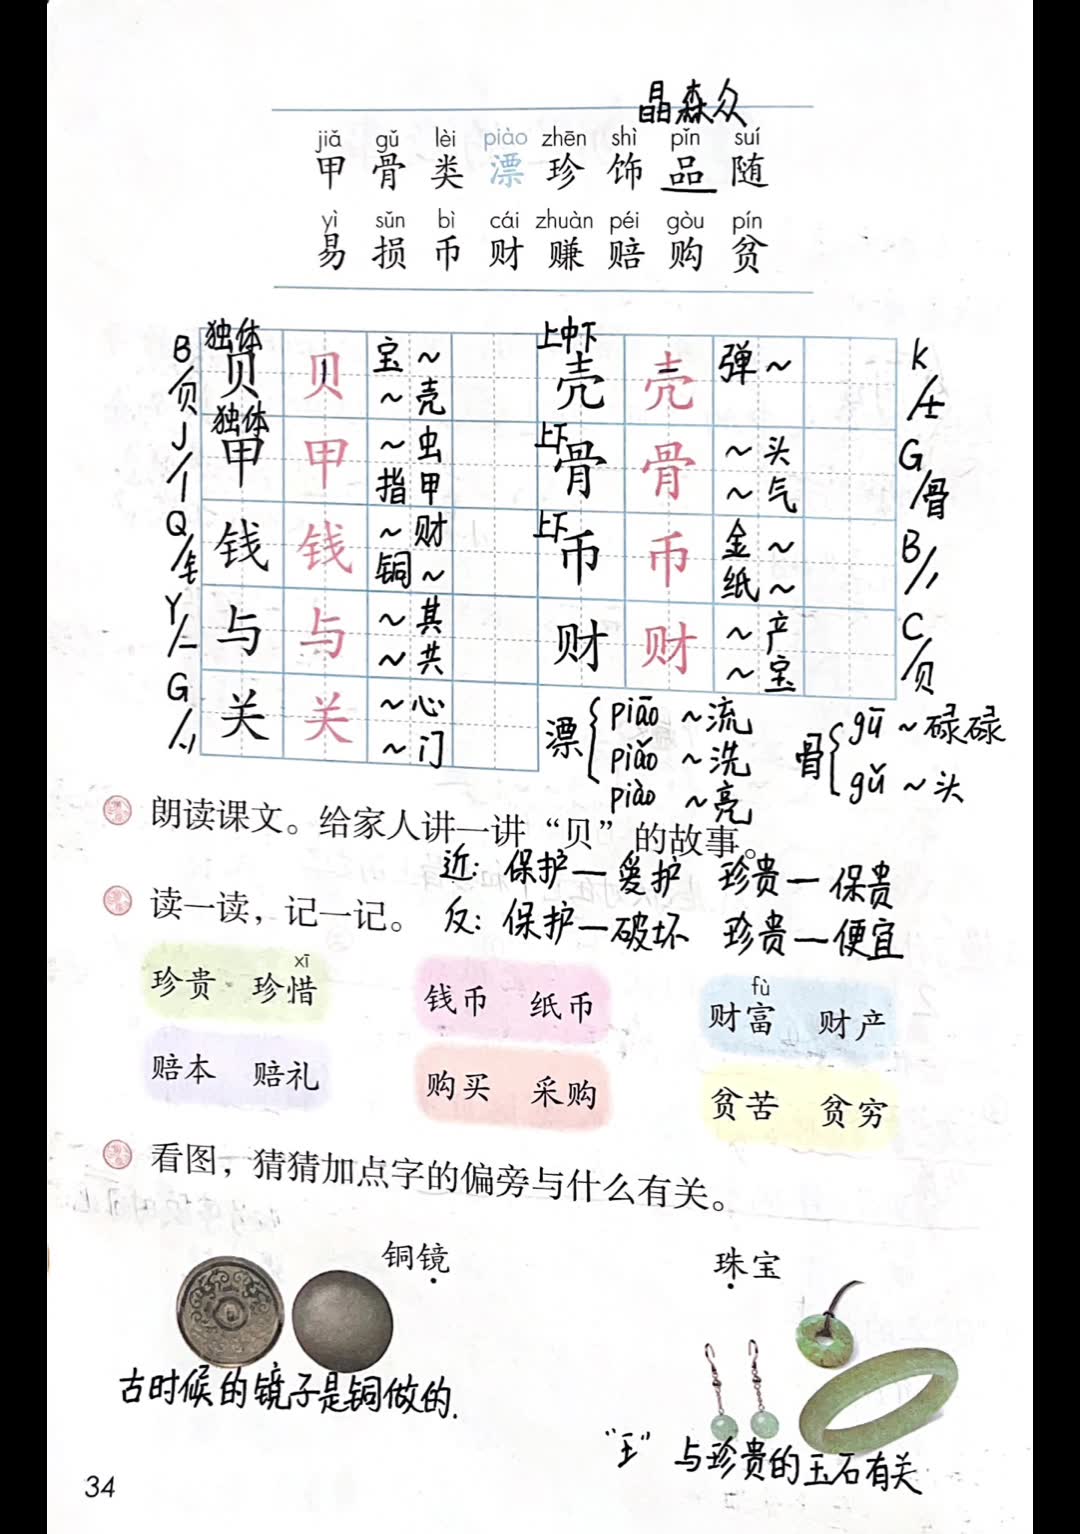 晶森众
jiǎ gǔ lèi piào zhēn shì pǐn suí
甲 骨 类 漂 珍 饰 品 随
yì sǔn bì cái zhuàn péi gòu pín
易 损 币 财 赚 赔 购 贫
独体 上中下
B/贝 贝 贝 宝~ ~壳 壳 壳 弹~ K/士
独体 上下
J/丨 甲 甲 ~虫 指甲 骨 骨 ~头 ~气 G/骨
上下
Q/钅 钱 钱 ~财 铜~ 币 币 金~ 纸~ B/丿
Y/一 与 与 ~其 ~共 财 财 ~产 ~宝 C/贝
G/丷 关 关 ~心 ~门
漂 piāo ~流 骨 gū ~碌碌
piǎo ~洗 gǔ ~头
piào ~亮
朗读课文。给家人讲一讲“贝”的故事。
近：保护—爱护 珍贵—保贵
读一读，记一记。 反：保护—破坏 珍贵—便宜
xī fù
珍贵 珍惜 钱币 纸币 财富 财产
赔本 赔礼 购买 采购 贫苦 贫穷
看图，猜猜加点字的偏旁与什么有关。
铜镜 珠宝
古时候的镜子是铜做的.
“王”与珍贵的玉石有关
34